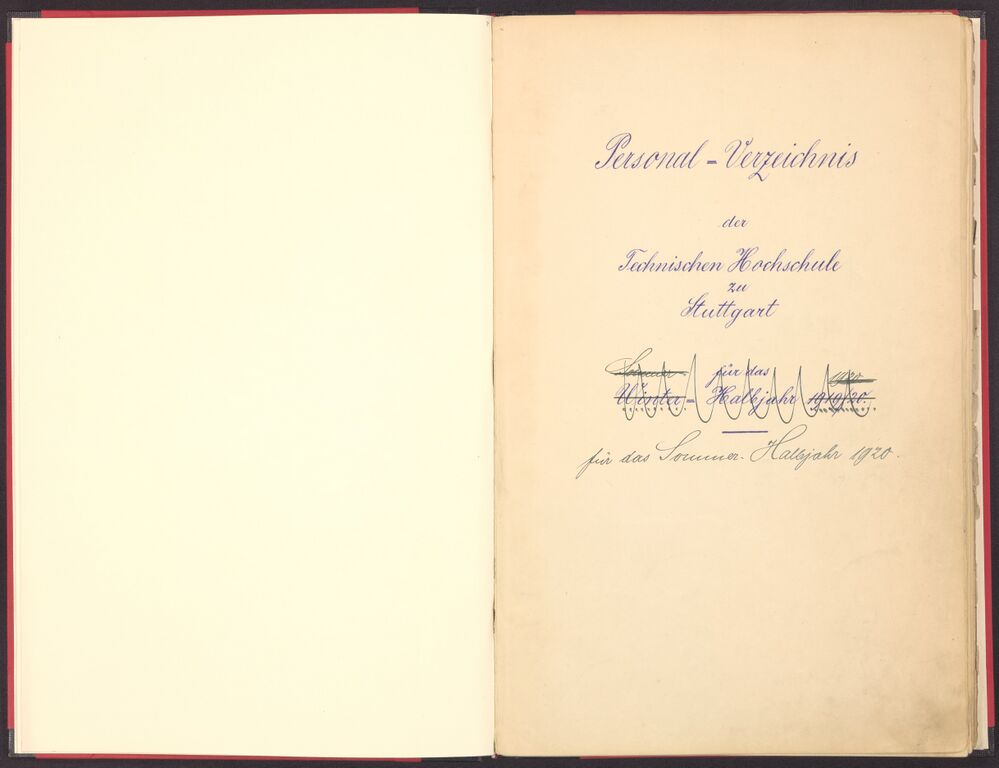 Personal-Verzeichnis
der
Technischen Hochschule
zu
Stuttgart
Sommer- für das 1920
Winter-Halbjahr 1919/20.
für das Sommer-Halbjahr 1920.